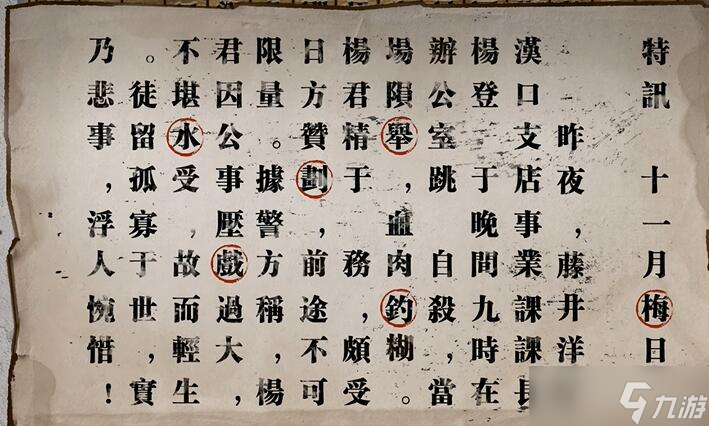 特訊 十一月梅日
昨夜，藤井洋
漢口支店事業課課長
楊登 于晚間九時在
辦公室跳 自殺，當
場隕舉，血肉釣糊。
楊君精于 務，頗受
日方贊劃，前途，不可
限量。據警，方稱，楊
君因公事壓戲過大，
不堪水受，故而輕生
。徒留孤寡于世，實
乃悲事，浮人惋惜！
九游